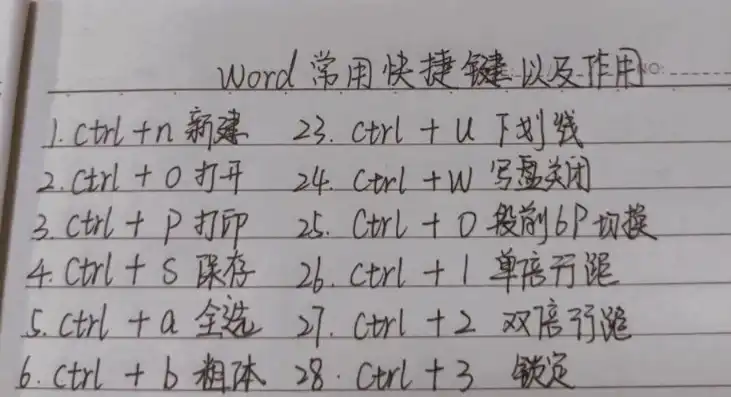 Word 常用快捷键以及作用
NO:
1. Ctrl + n 新建 23. Ctrl + U 下划线
2. Ctrl + O 打开 24. Ctrl + W 写盘关闭
3. Ctrl + P 打印 25. Ctrl + 0 段前6P切换
4. Ctrl + S 保存 26. Ctrl + 1 单倍行距
5. Ctrl + a 全选 27. Ctrl + 2 双倍行距
6. Ctrl + b 粗体 28. Ctrl + 3 锁定